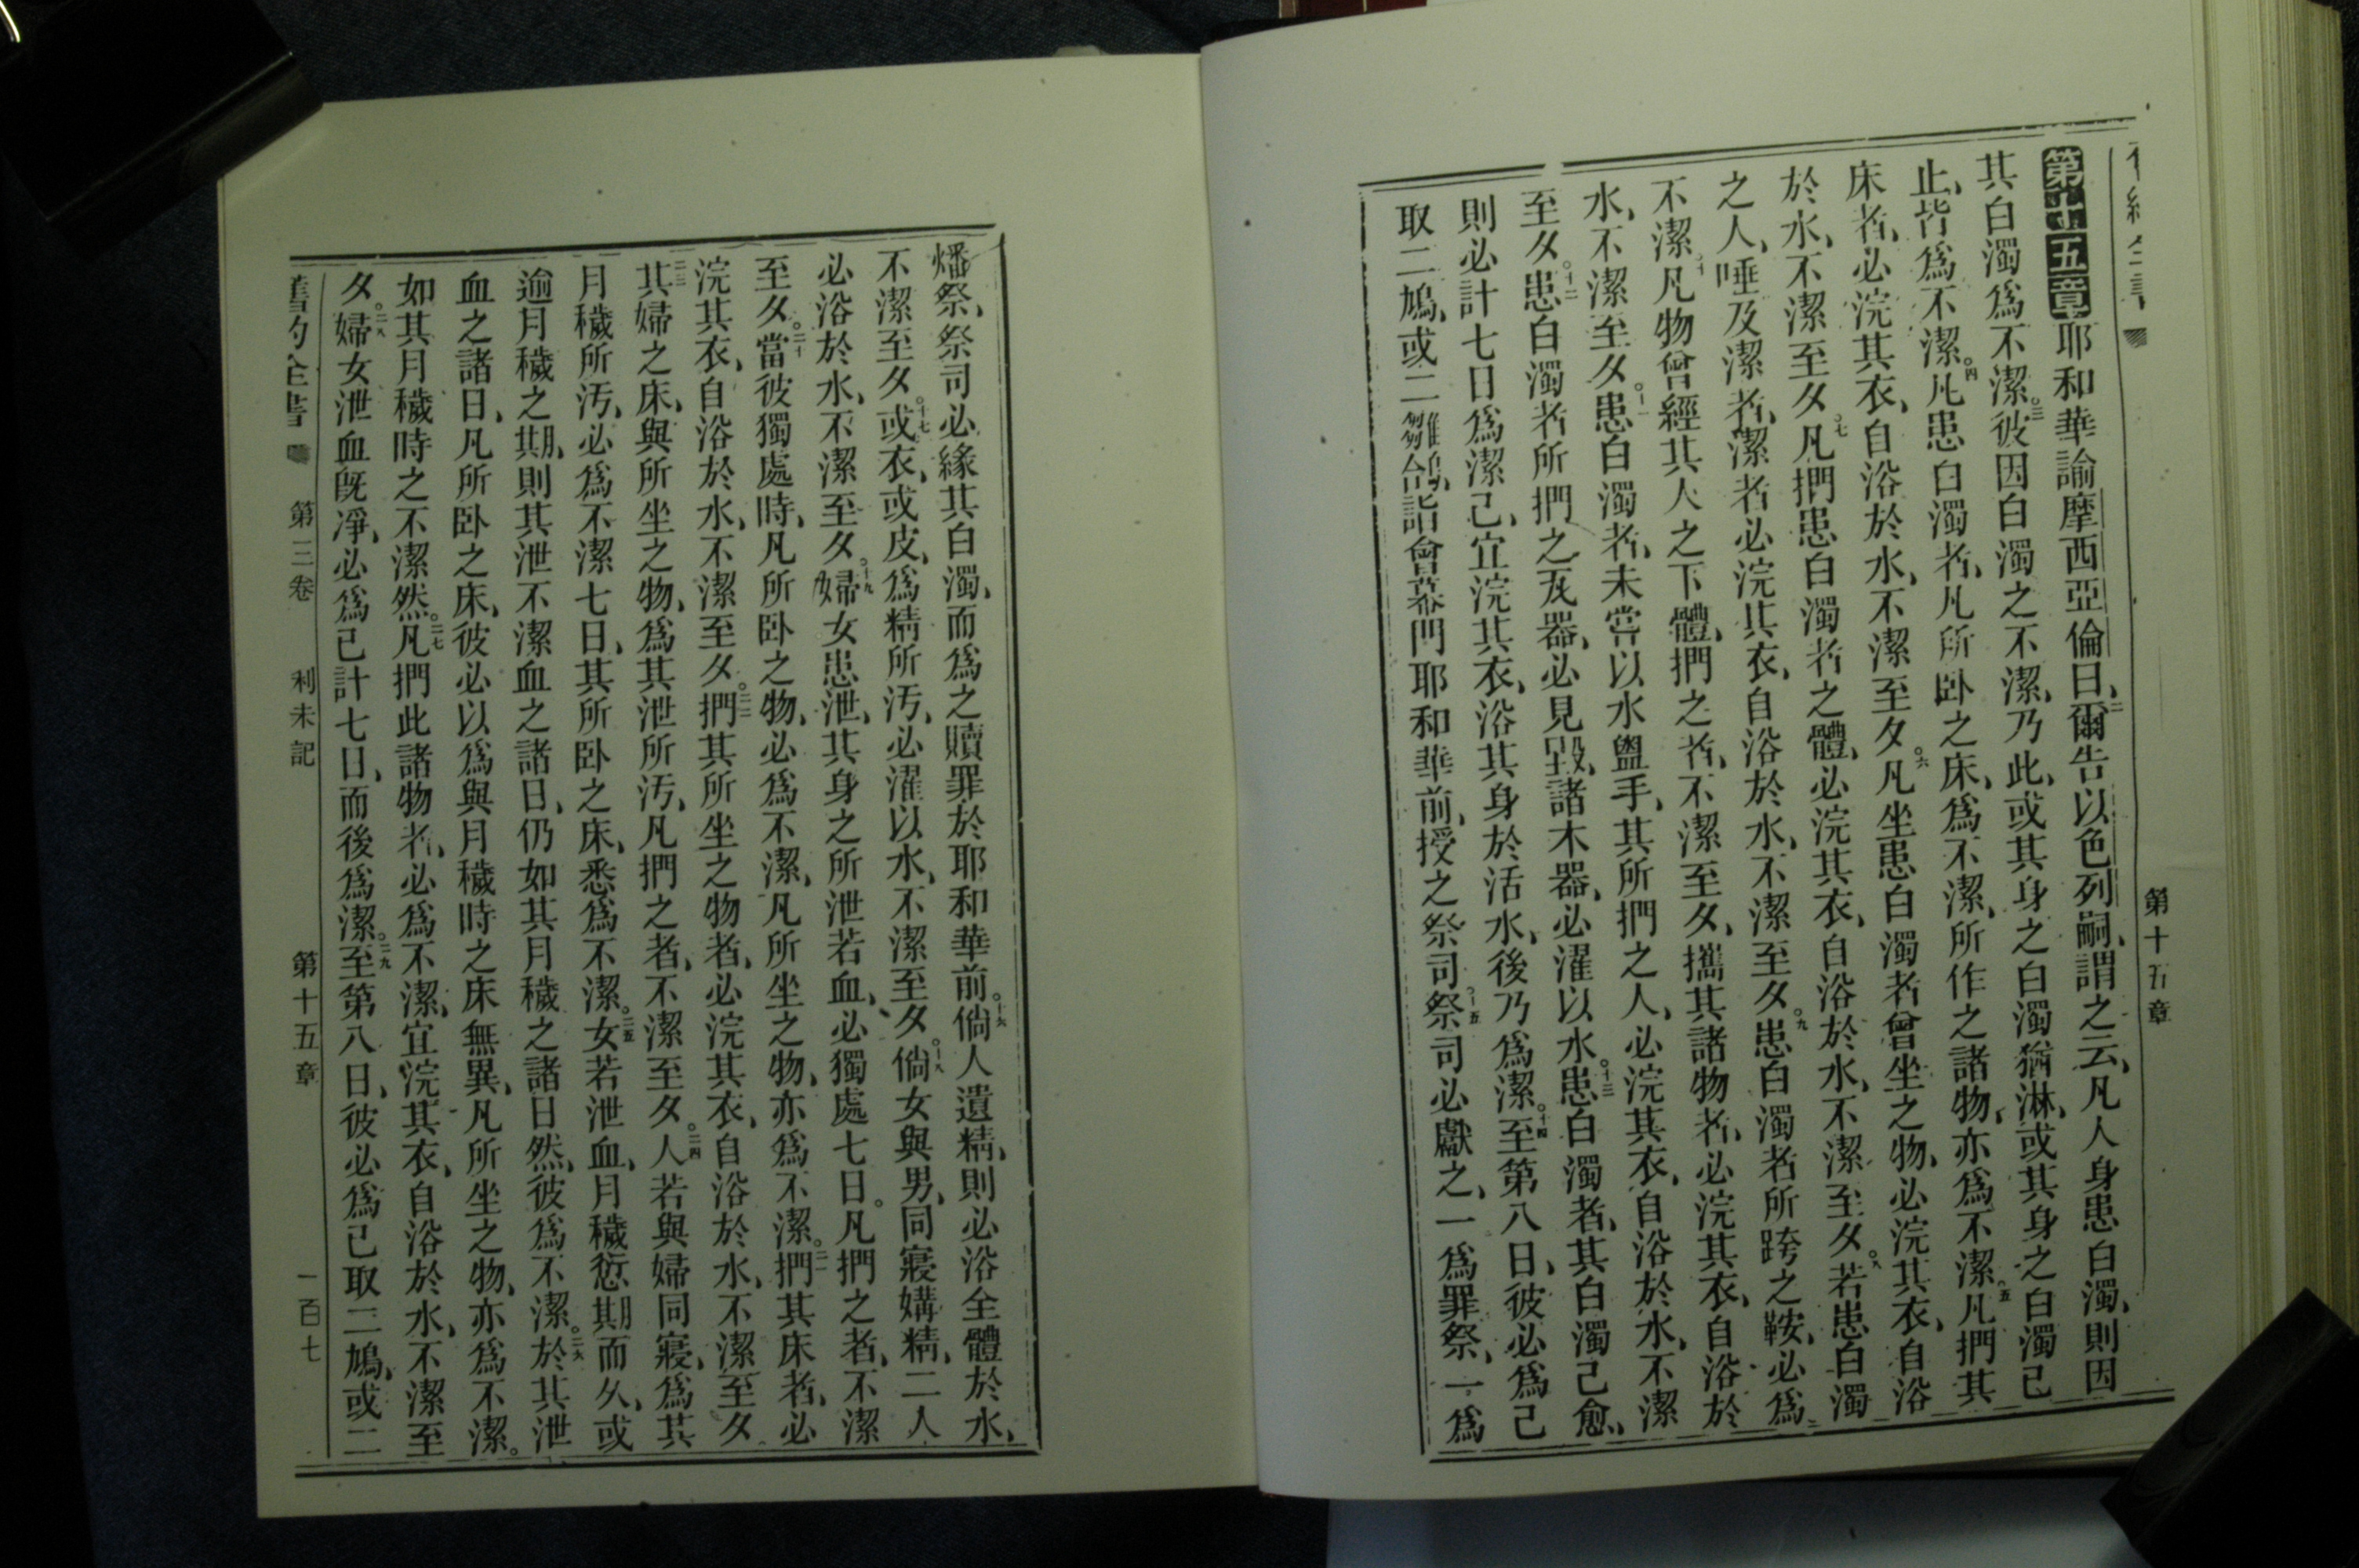 第十五章
第十五章耶和華諭摩西亞倫曰、二爾告以色列嗣、謂之云、凡人身患白濁、則因
其白濁爲不潔。三彼因白濁之不潔、乃此、或其身之白濁猶淋、或其身之白濁已
止、皆爲不潔。四凡患白濁者、凡所卧之床、爲不潔、所作之諸物、亦爲不潔。五凡捫其
床者、必浣其衣、自浴於水、不潔至夕。六凡坐患白濁者曾坐之物、必浣其衣、自浴
於水、不潔至夕。七凡捫患白濁者之體、必浣其衣、自浴於水、不潔至夕。八若患白濁
之人、唾及潔者、潔者必浣其衣、自浴於水、不潔至夕。九患白濁者所跨之鞍、必爲
不潔。十凡物曾經其人之下體、捫之者、不潔至夕、攜其諸物者、必浣其衣、自浴於
水、不潔至夕。十一患白濁者、未嘗以水盥手、其所捫之人、必浣其衣、自浴於水、不潔
至夕。十二患白濁者所捫之瓦器、必見毀、諸木器、必濯以水。十三患白濁者、其白濁已愈、
則必計七日爲潔己、宜浣其衣、浴其身於活水、後乃爲潔。十四至第八日、彼必爲己
取二鳩、或二雛鴿、詣會幕門耶和華前、授之祭司。十五祭司必獻之、一爲罪祭、一爲
燔祭、祭司必緣其白濁、而爲之贖罪於耶和華前。十六倘人遺精、則必浴全體於水、
不潔至夕。十七或衣、或皮、爲精所汚、必濯以水、不潔至夕。十八倘女與男、同寢媾精、二人
必浴於水、不潔至夕。十九婦女患泄、其身之所泄若血、必獨處七日。凡捫之者、不潔
至夕。二十當彼獨處時、凡所卧之物、必爲不潔、凡所坐之物、亦爲不潔。二一捫其床者、必
浣其衣、自浴於水、不潔至夕。二二捫其所坐之物者、必浣其衣、自浴於水、不潔至夕。
二三其婦之床、與所坐之物、爲其泄所汚、凡捫之者、不潔至夕。二四人若與婦同寢、爲其
月穢所汚、必爲不潔七日、其所卧之床、悉爲不潔。二五女若泄血、月穢愆期而久、或
逾月穢之期、則其泄不潔血之諸日、仍如其月穢之諸日然、彼爲不潔。二六於其泄
血之諸日、凡所卧之床、彼必以爲與月穢時之床無異、凡所坐之物、亦爲不潔。
如其月穢時之不潔然。二七凡捫此諸物者、必爲不潔、宜浣其衣、自浴於水、不潔至
夕。二八婦女泄血旣淨、必爲己計七日、而後爲潔。二九至第八日、彼必爲己取二鳩、或二
舊約全書 第三卷 利未記 第十五章 一百七